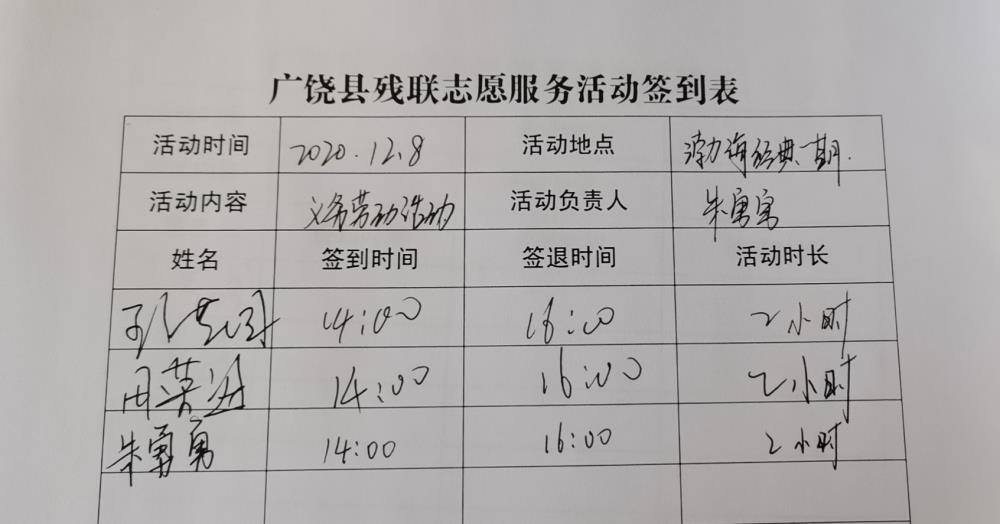 广饶县残联志愿服务活动签到表
活动时间 2020.12.8 活动地点 渤海经典一期.
活动内容 义务劳动活动 活动负责人 朱勇勇
姓名 签到时间 签退时间 活动时长
14:00 16:00 2小时
14:00 16:00 2小时
朱勇勇 14:00 16:00 2小时